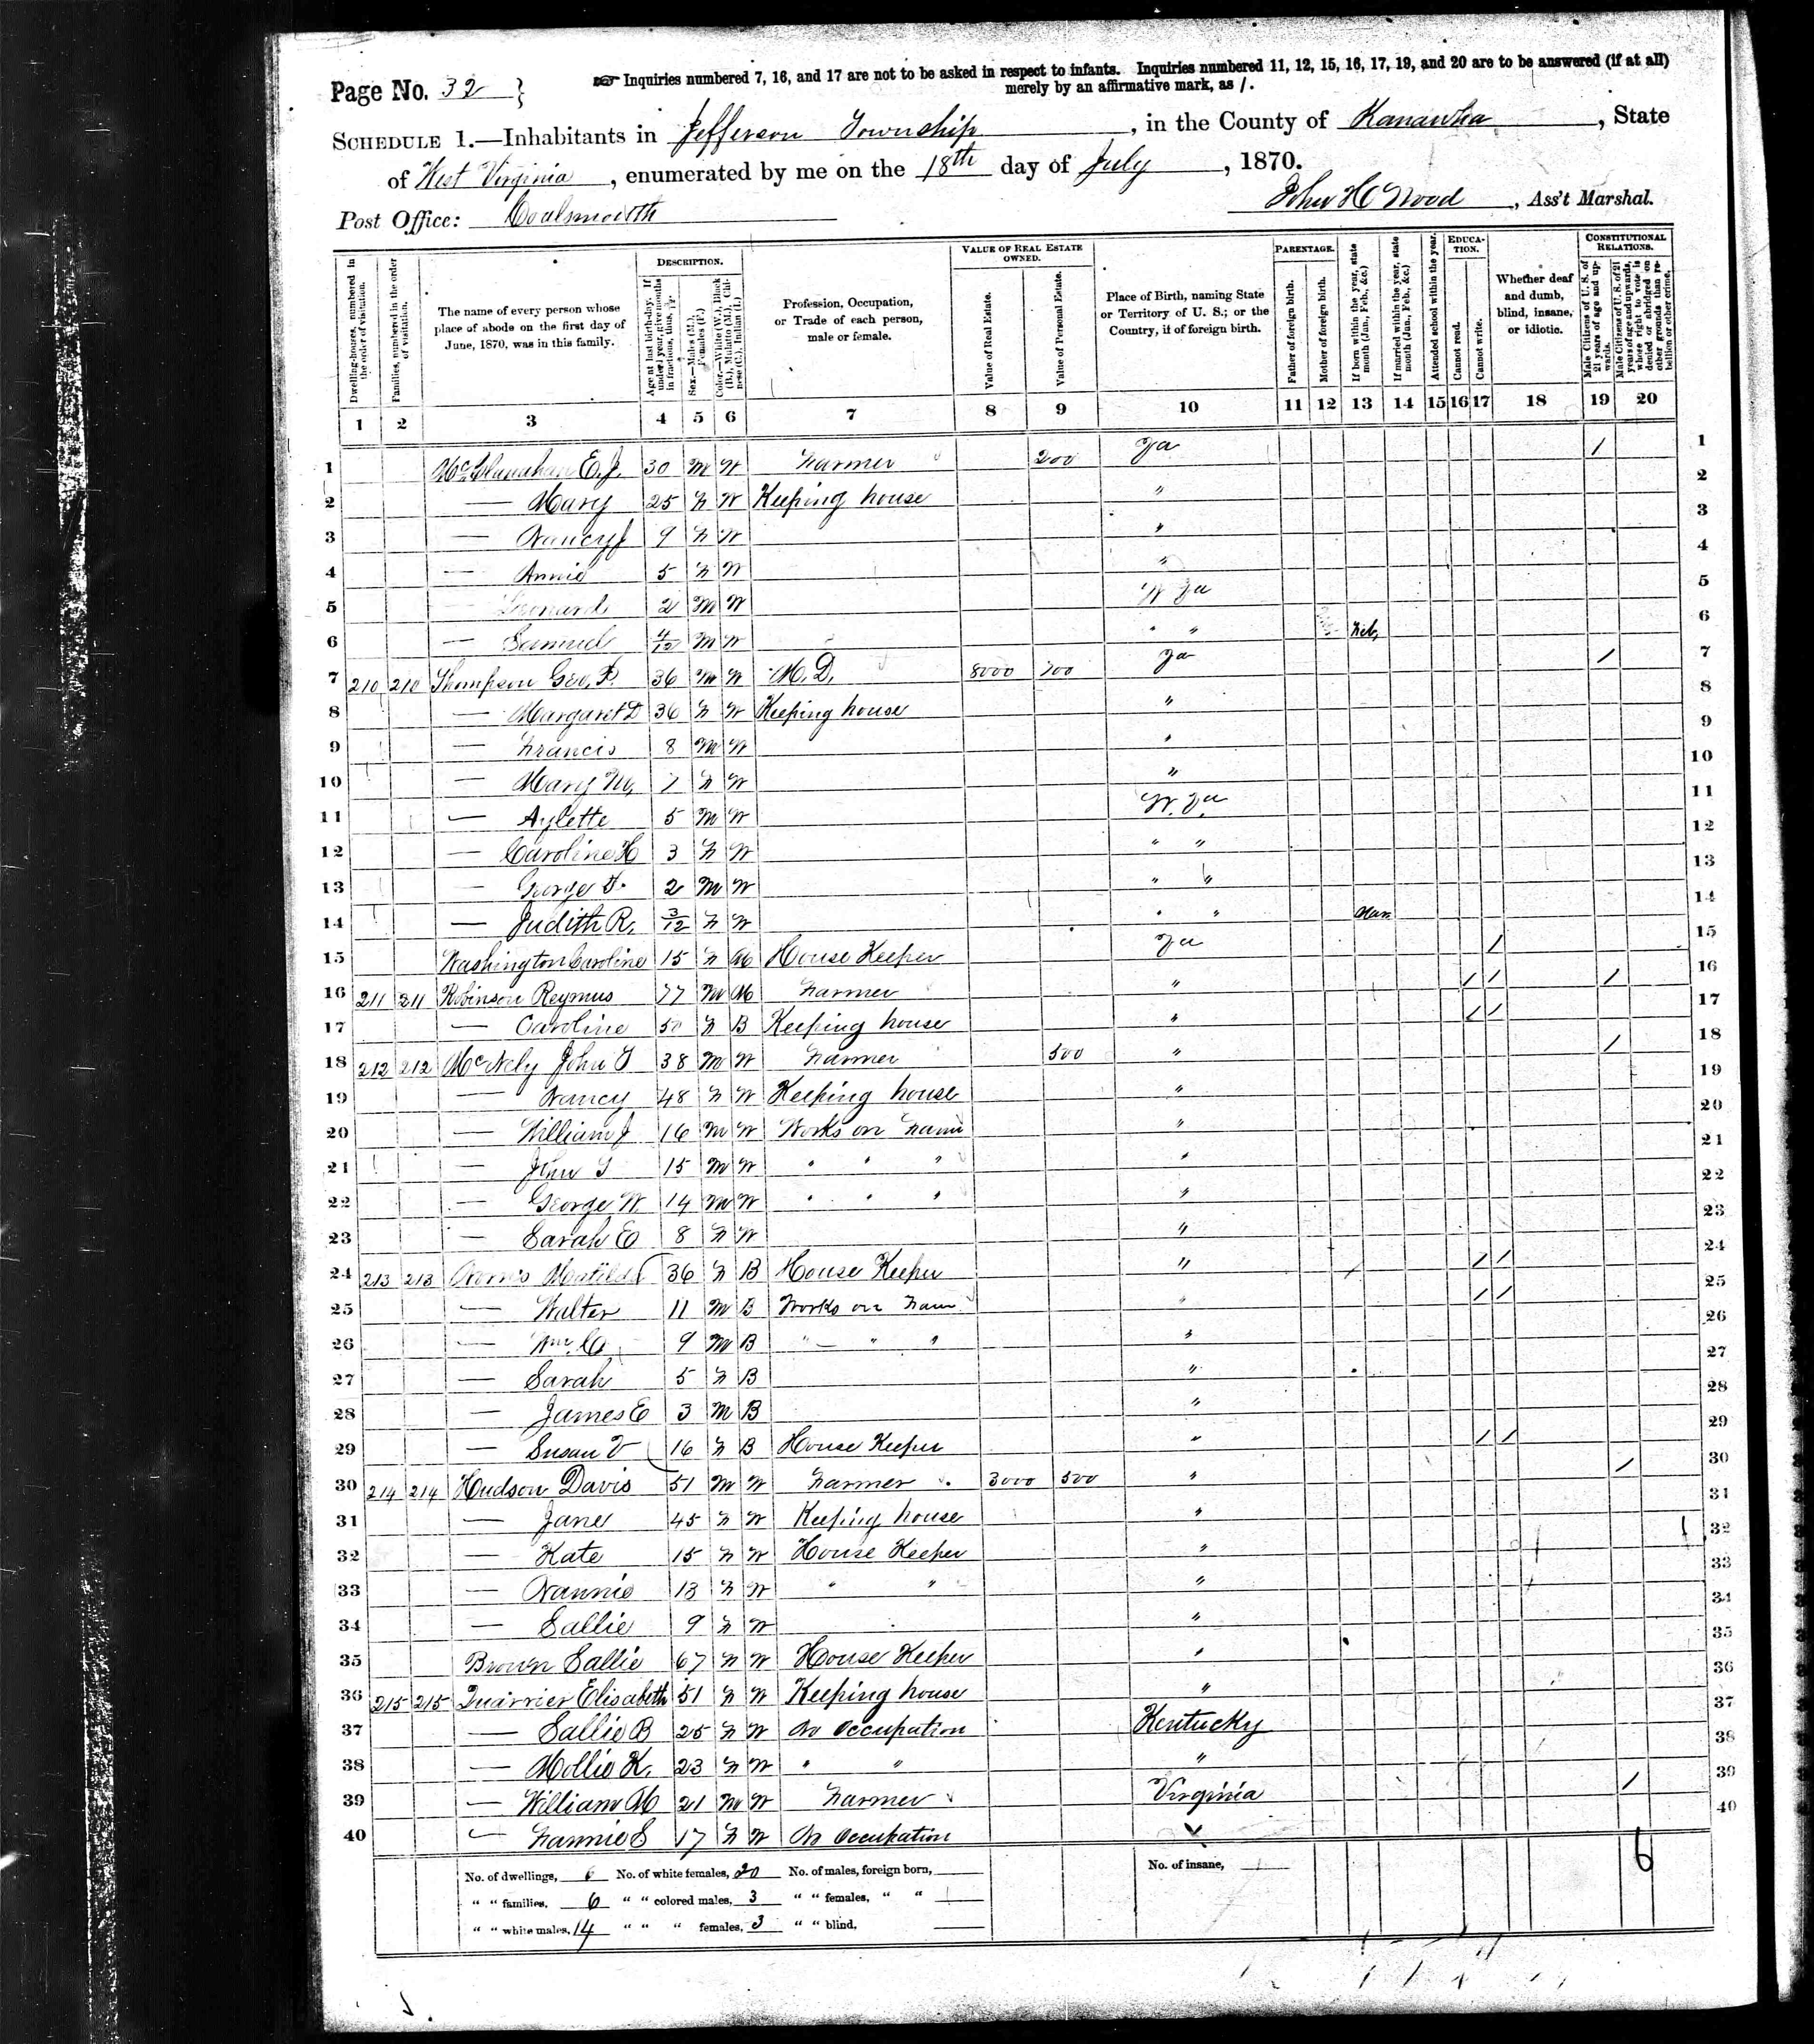 Page No. 32 }
☞ Inquiries numbered 7, 16, and 17 are not to be asked in respect to infants. Inquiries numbered 11, 12, 15, 16, 17, 19, and 20 are to be answered (if at all)
merely by an affirmative mark, as /.
SCHEDULE 1.—Inhabitants in Jefferson Township, in the County of Kanawha, State
of West Virginia, enumerated by me on the 18th day of July, 1870.
Post Office: Coalsmouth
John H C Wood, Ass't Marshal.
Dwelling-houses, numbered in the order of visitation.
Families, numbered in the order of visitation.
The name of every person whose place of abode on the first day of June, 1870, was in this family.
DESCRIPTION.
Age at last birth-day. If under 1 year, give months in fractions, thus, 3/12
Sex.—Males (M.), Females (F.)
Color.—White (W.), Black (B.), Mulatto (M.), Chinese (C.), Indian (I.)
Profession, Occupation, or Trade of each person, male or female.
VALUE OF REAL ESTATE OWNED.
Value of Real Estate.
Value of Personal Estate.
Place of Birth, naming State or Territory of U. S.; or the Country, if of foreign birth.
PARENTAGE.
Father of foreign birth.
Mother of foreign birth.
If born within the year, state month (Jan., Feb., &c.)
If married within the year, state month (Jan., Feb., &c.)
Attended school within the year.
EDUCATION.
Cannot read.
Cannot write.
Whether deaf and dumb, blind, insane, or idiotic.
CONSTITUTIONAL RELATIONS.
Male Citizens of U. S. of 21 years of age and upwards.
Male Citizens of U. S. of 21 years of age and upwards, whose right to vote is denied or abridged on other grounds than rebellion or other crime.
1 2 3 4 5 6 7 8 9 10 11 12 13 14 15 16 17 18 19 20
1 McClanahan E. J. 30 M W Farmer 200 Va / 1
2 — Mary 25 F W Keeping house " 2
3 — Nancy J 9 F W " 3
4 — Annie 5 F W " 4
5 — Leonard 2 M W W Va 5
6 — Samuel 4/12 M W " " Feb, 6
7 210 210 Thompson Geo. P. 36 M W M. D. 8000 700 Va / 7
8 — Margaret D 36 F W Keeping house " 8
9 — Francis 8 M W " 9
10 — Mary M, 7 F W " 10
11 — Aylette 5 M W W. Va 11
12 — Caroline H 3 F W " " 12
13 — George P. 2 M W " " 13
14 — Judith R, 3/12 F W " " Mar 14
15 Washington Caroline 15 F M House Keeper Va / 15
16 211 211 Robinson Reymus 77 M M Farmer " / / / 16
17 — Caroline 50 F B Keeping house " / / 17
18 212 212 McNely John T 38 M W Farmer 500 " / 18
19 — Nancy 48 F W Keeping house " 19
20 — William J 16 M W Works on Farm " 20
21 — John T 15 M W " " " " 21
22 — George W. 14 M W " " " " 22
23 — Sarah E 8 F W " 23
24 213 213 Norris Matilda 36 F B House Keeper " / / 24
25 — Walter 11 M B Works on Farm " / / 25
26 — Wm. C 9 M B " " " " 26
27 — Sarah 5 F B " 27
28 — James E 3 M B " 28
29 — Susan V 16 F B House Keeper " / / 29
30 214 214 Hudson Davis 51 M W Farmer 3000 500 " / 30
31 — Jane 45 F W Keeping house " 31
32 — Kate 15 F W House Keeper " 32
33 — Nannie 13 F W " " " 33
34 — Sallie 9 F W " 34
35 Brown Sallie 67 F W House Keeper " 35
36 215 215 Quarrier Elisabeth 51 F W Keeping house " 36
37 — Sallie B 25 F W No Occupation Kentucky 37
38 — Mollie K. 23 F W " " " 38
39 — William M 21 M W Farmer Virginia / 39
40 — Fannie S 17 F W No Occupation " 40
No. of dwellings, 6 No. of white females, 20 No. of males, foreign born, No. of insane, 6
" " families, 6 " " colored males, 3 " " females, " "
" " white males, 14 " " " females, 3 " " blind,